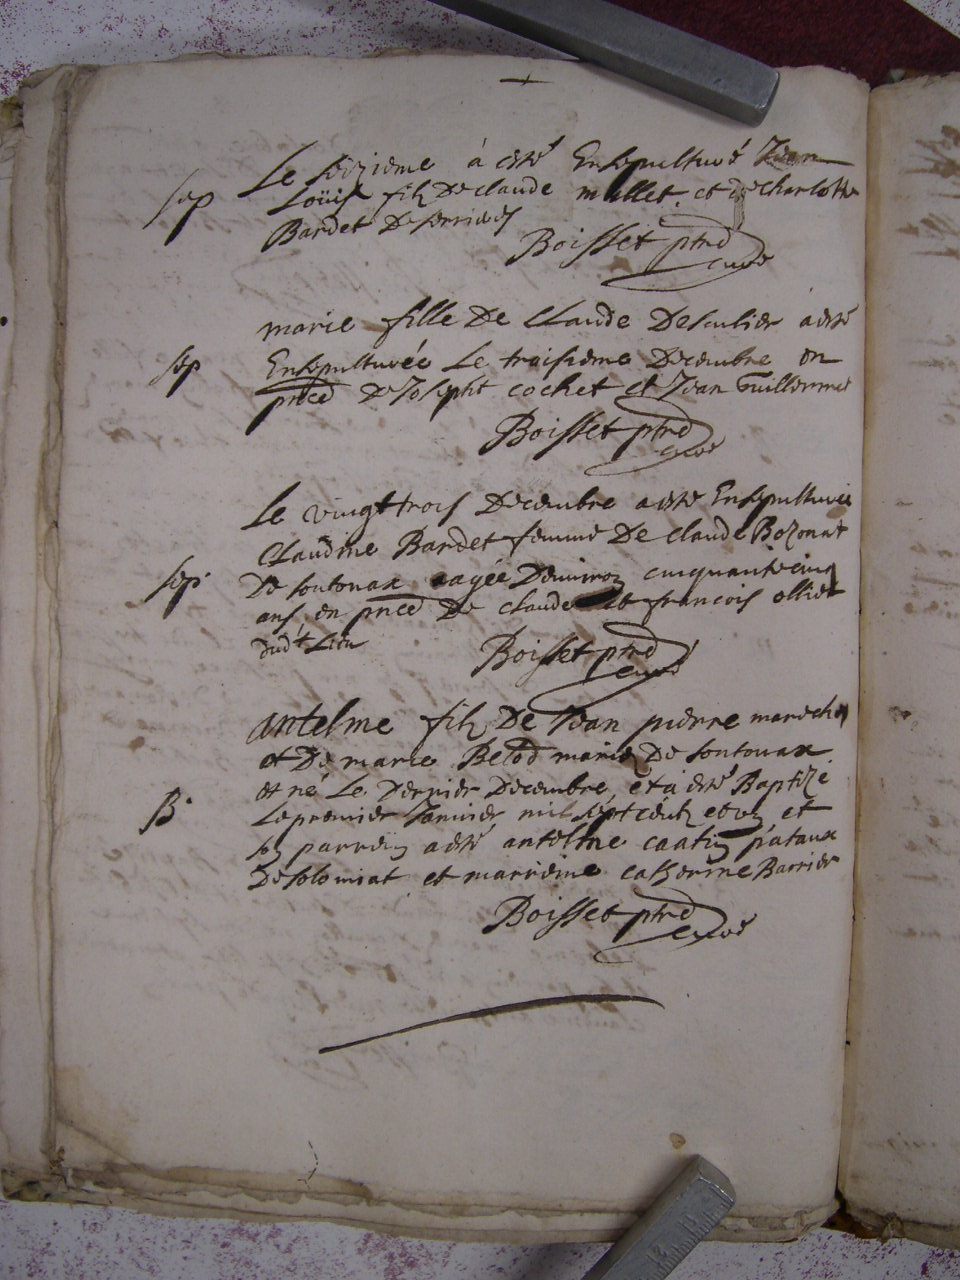 Le seizieme à esté Ensepulturé Jean
sep Loüis filz De claude mallet et de charlotte
Bardet De serrieres
Boisset ptre
curé
marie fille De Claude Desculier à esté
sep Ensepulturée Le troisieme Decembre en
pnce de Joseph cochet et Jean Guillermet
Boisset ptre
curé
Le vingttrois Decembre a esté Ensepulturée
Claudine Bardet femme De claude Bozonat
sep. De soutonax aagée Denviron cinquantecinq
ans, en pnce De claude et francois ollier
dudt Lieu
Boisset ptre
curé
antelme filz De Jean pierre marechal
et De marie mariez De soutonax
et né Le Dernier Decembre, et à esté Baptizé
B. Le premier Janvier mil sept centz et un et
so parrein a esté antelme pataux
De solomiat et marreine catherine Barrier
Boisset ptre
curé